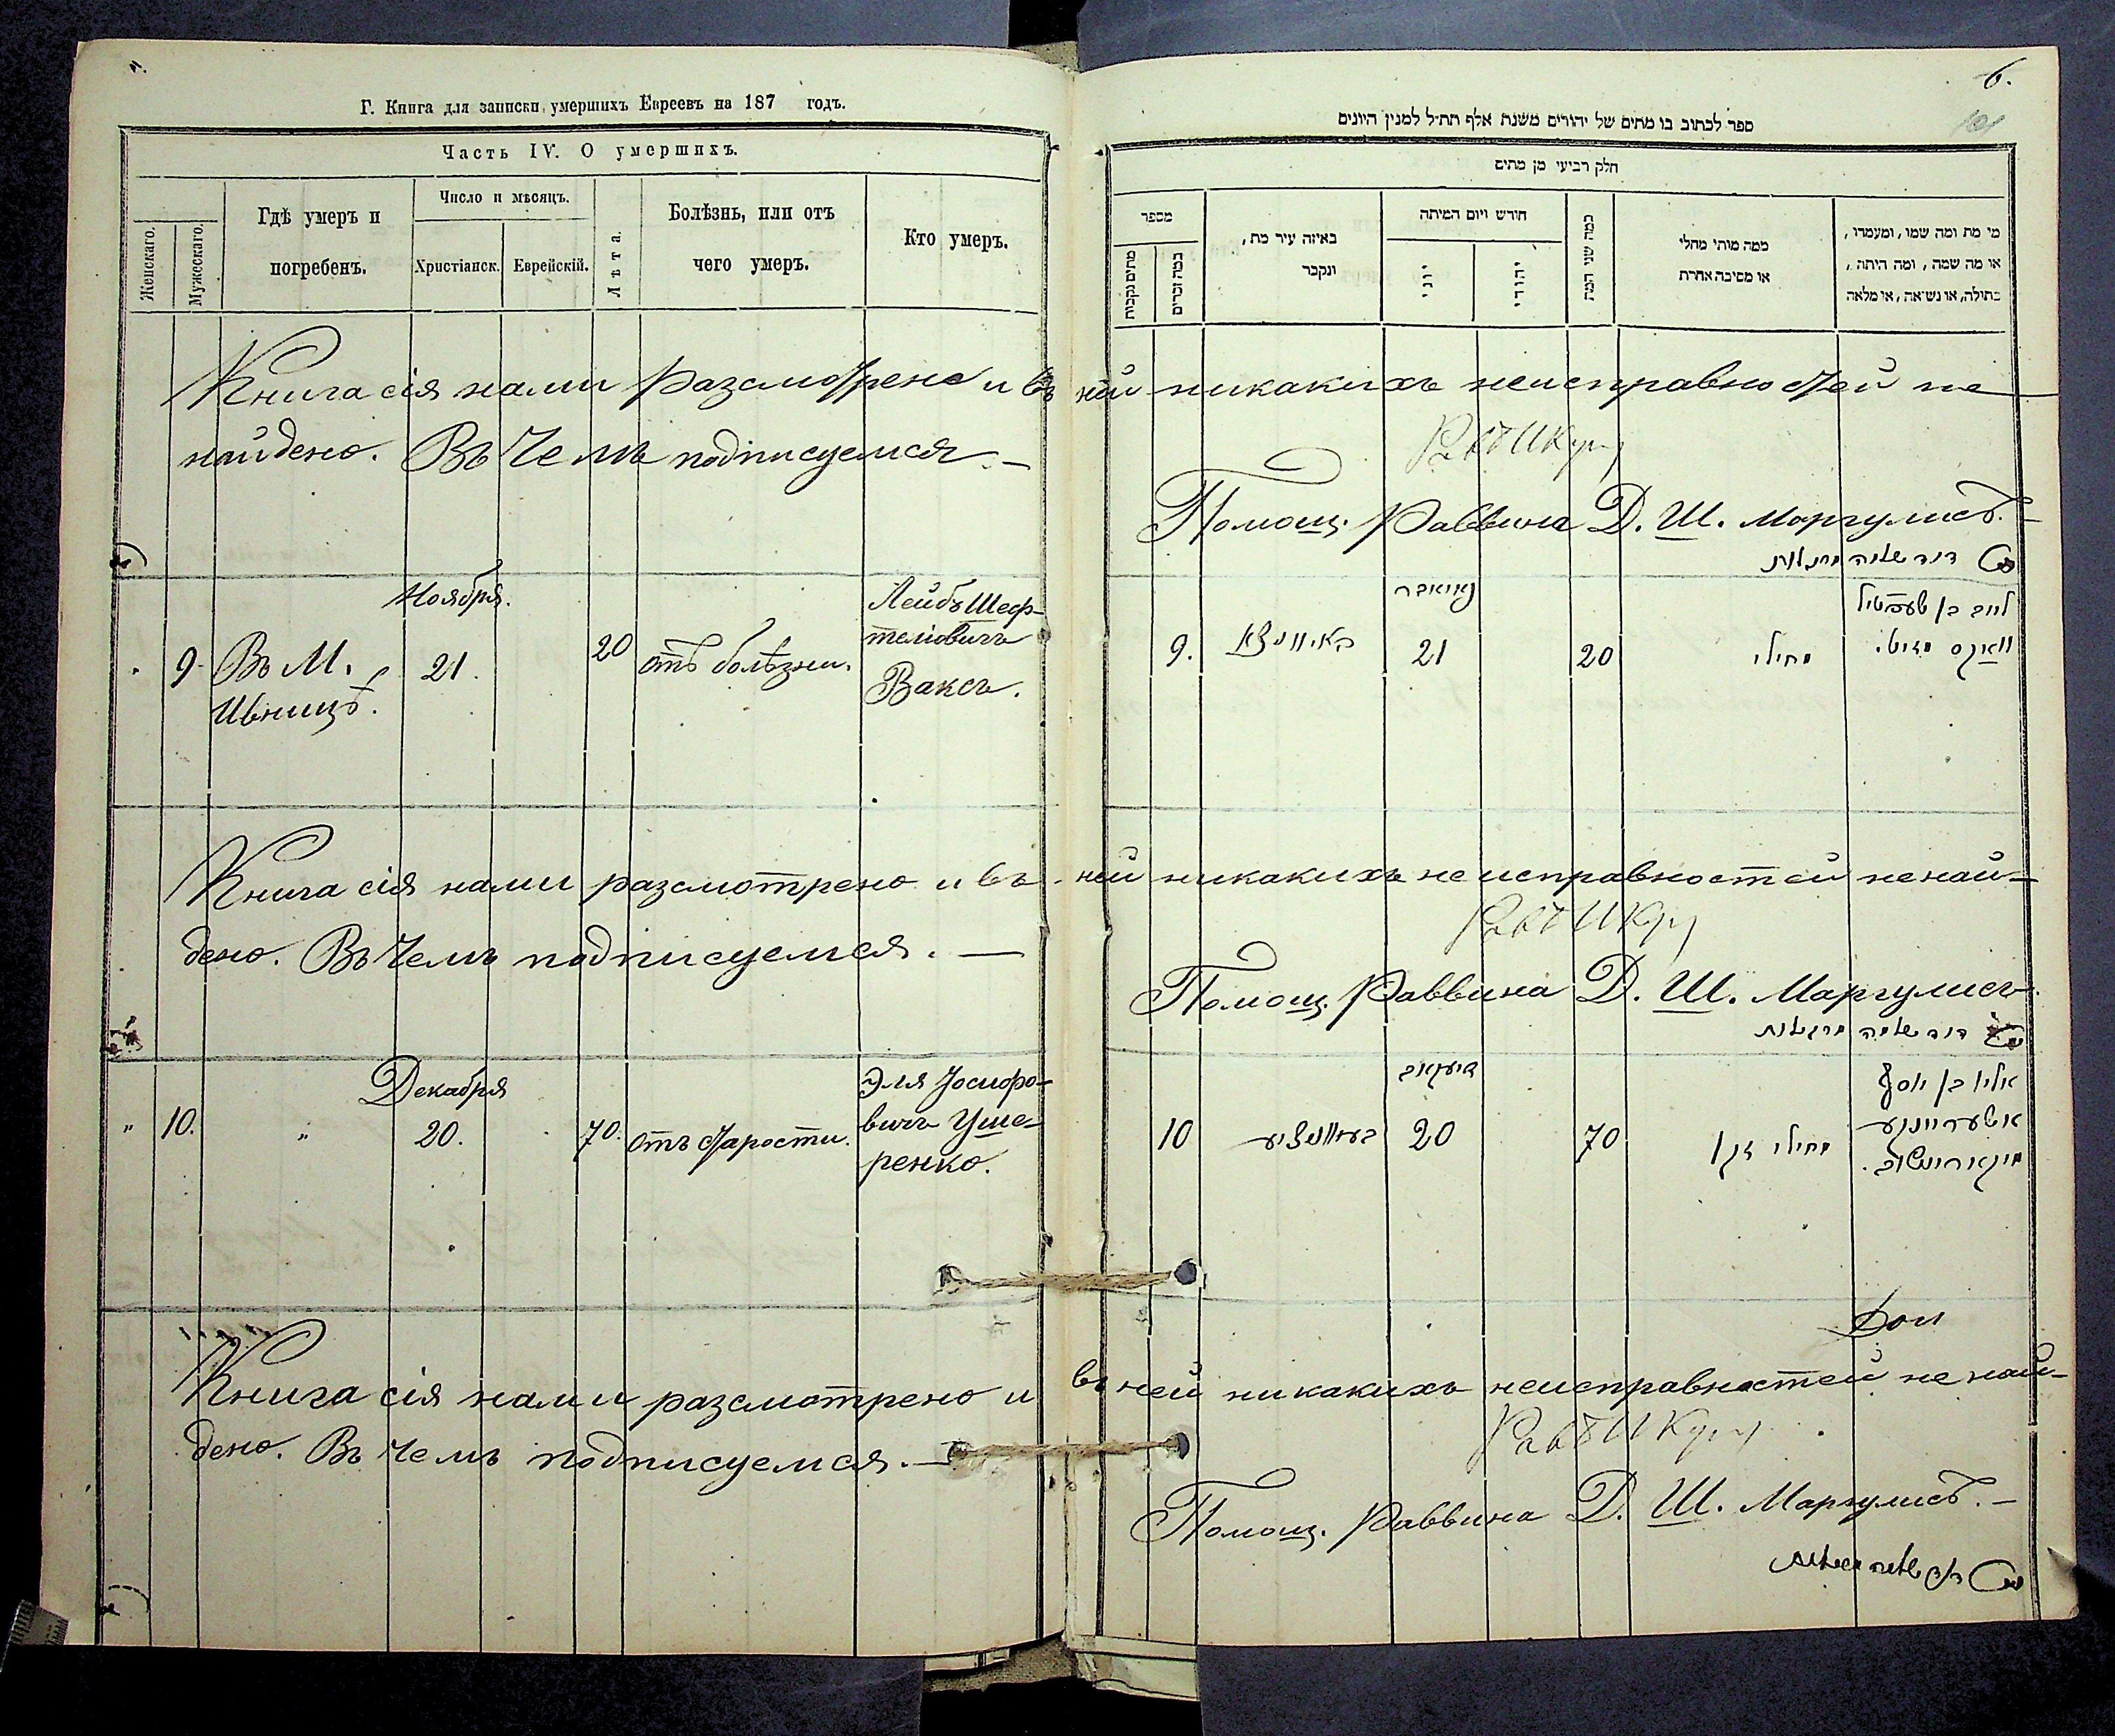 Г. Книга для записки умершихъ Евреевъ на 187 годъ.
Часть IV. О умершихъ.
Женскаго.
Мужескаго.
Гдѣ умеръ и
погребенъ.
Число и мѣсяцъ.
Христіанск.
Еврейскій.
Лѣта.
Болѣзнь, или отъ
чего умеръ.
Кто умеръ.
6.
ספר לכתוב בו מתים של יהודים משנת אלף תת״ל למנין היונים
חלק רביעי מן מתים
מספר
מתים נקבות
כמה זכרים
באיזה עיר מת,
ונקבר
חודש ויום המיתה
יוני
יהודי
כמה שני המת
ממה מותו מחלי
או מסיבה אחרת
מי מת ומה שמו, ומעמדו,
או מה שמה, ומה היתה,
בתולה, או נשואה, או מלאה
Книга сія нами разсмотрено и въ ней никакихъ неисправностей не
найдено. Въ чемъ подписуемся. —
Помощ. Раввина Д. Ш. Маргулисъ. —
דוד שלמה מרגלות
Ноября.
9. Въ М. 21. 20 отъ болѣзни. Лейбъ Шеф-
Ивницѣ. теліовичъ
Ваксъ.
נאיאבר
9. 21 20 מחולי לייב בן שעפטיל
וואקס
Книга сія нами разсмотрено и въ ней никакихъ неисправностей не най-
дено. Въ чемъ подписуемся. —
Помощ. Раввина Д. Ш. Маргулисъ.
דוד שלמה מרגלות
Декабря
" 10. " 20. 70. отъ старости. Эля Іосифо-
вичъ Уше-
ренко.
דיעקאב
10 20 70 מחולי זקן אליו בן יוסף
Книга сія нами разсмотрено и въ ней никакихъ неисправностей не най-
дено. Въ чемъ подписуемся. —
Помощ. Раввина Д. Ш. Маргулисъ. —